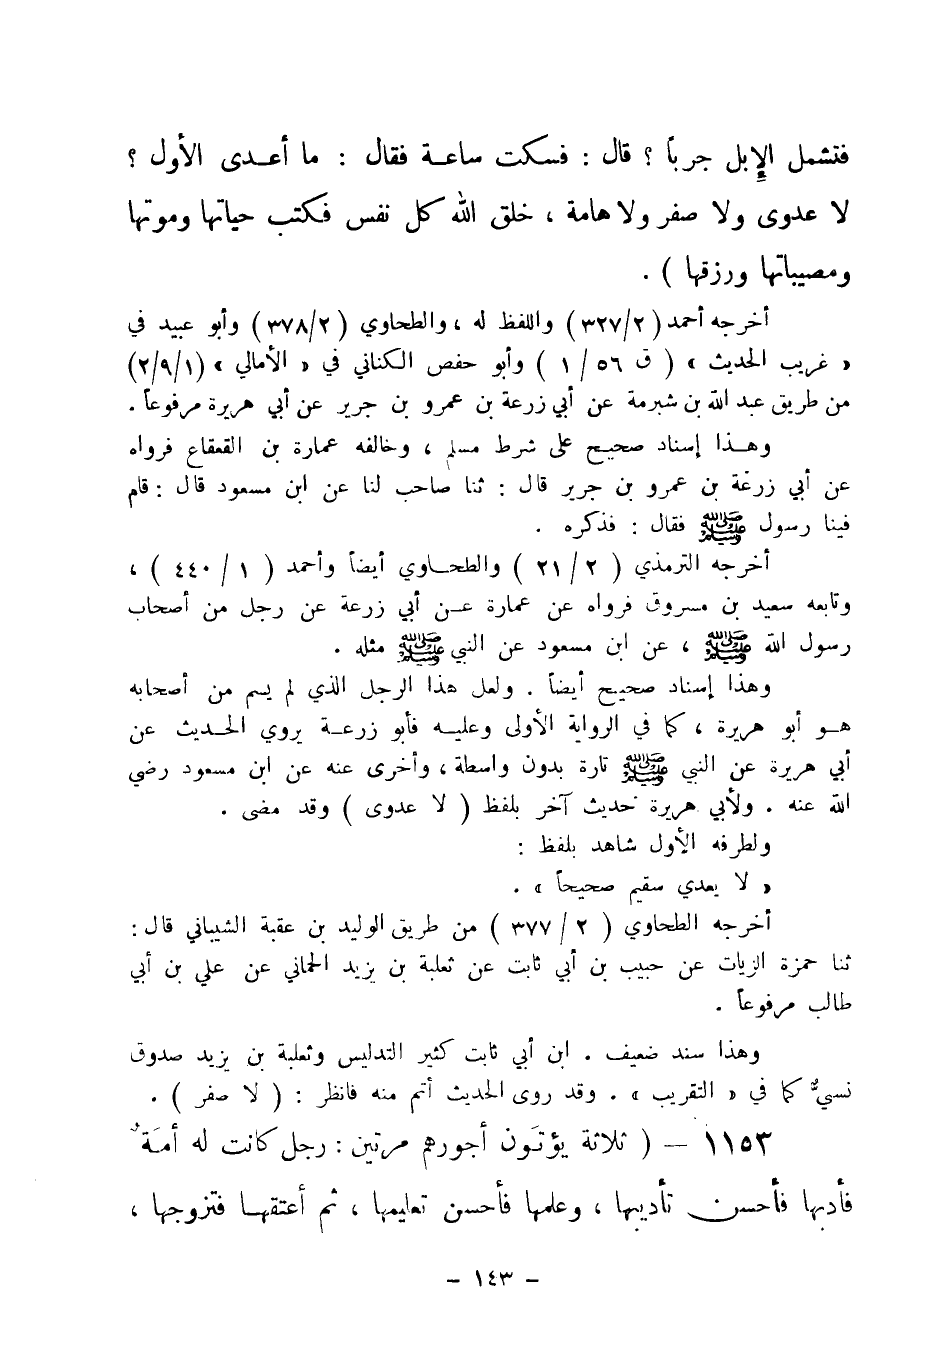 فتشمل الإبل جرباً ؟ قال : فسكت ساعة فقال : ما أعدى الأول ؟
لا عدوى ولا صفر ولا هامة ، خلق الله كل نفس فكتب حياتها وموتها
ومصيباتها ورزقها ) .
أخرجه أحمد ( ٣٢٧/٢ ) واللفظ له ، والطحاوي ( ٣٧٨/٢ ) وأبو عبيد في
« غريب الحديث » ( ق ٥٦ / ١ ) وأبو حفص الكناني في « الأمالي » (٢/٩/١)
من طريق عبد الله بن شبرمة عن أبي زرعة بن عمرو بن جرير عن أبي هريرة مرفوعاً .
وهذا إسناد صحيح على شرط مسلم ، وخالفه عمارة بن القعقاع فرواه
عن أبي زرعة بن عمرو بن جرير قال : ثنا صاحب لنا عن ابن مسعود قال : قام
فينا رسول ﷺ فقال : فذكره .
أخرجه الترمذي ( ٢ / ٢١ ) والطحاوي أيضاً وأحمد ( ١ / ٤٤٠ ) ،
وتابعه سعيد بن مسروق فرواه عن عمارة عن أبي زرعة عن رجل من أصحاب
رسول الله ﷺ ، عن ابن مسعود عن النبي ﷺ مثله .
وهذا إسناد صحيح أيضاً . ولعل هذا الرجل الذي لم يسم من أصحابه
هو أبو هريرة ، كما في الرواية الأولى وعليه فأبو زرعة يروي الحديث عن
أبي هريرة عن النبي ﷺ تارة بدون واسطة ، وأخرى عنه عن ابن مسعود رضي
الله عنه . ولأبي هريرة حديث آخر بلفظ ( لا عدوى ) وقد مضى .
ولطرفه الأول شاهد بلفظ :
« لا يعدي سقيم صحيحاً » .
أخرجه الطحاوي ( ٢ / ٣٧٧ ) من طريق الوليد بن عقبة الشيباني قال :
ثنا حمزة الزيات عن حبيب بن أبي ثابت عن ثعلبة بن يزيد الحماني عن علي بن أبي
طالب مرفوعاً .
وهذا سند ضعيف . ابن أبي ثابت كثير التدليس وثعلبة بن يزيد صدوق
نسيٌّ كما في « التقريب » . وقد روى الحديث أتم منه فانظر : ( لا صفر ) .
١١٥٣ – ( ثلاثة يؤتَون أجورهم مرتين : رجل كانت له أمَةٌ
فأدبها فأحسن تأديبها ، وعلمها فأحسن تعليمها ، ثم أعتقها فتزوجها ،
– ١٤٣ –